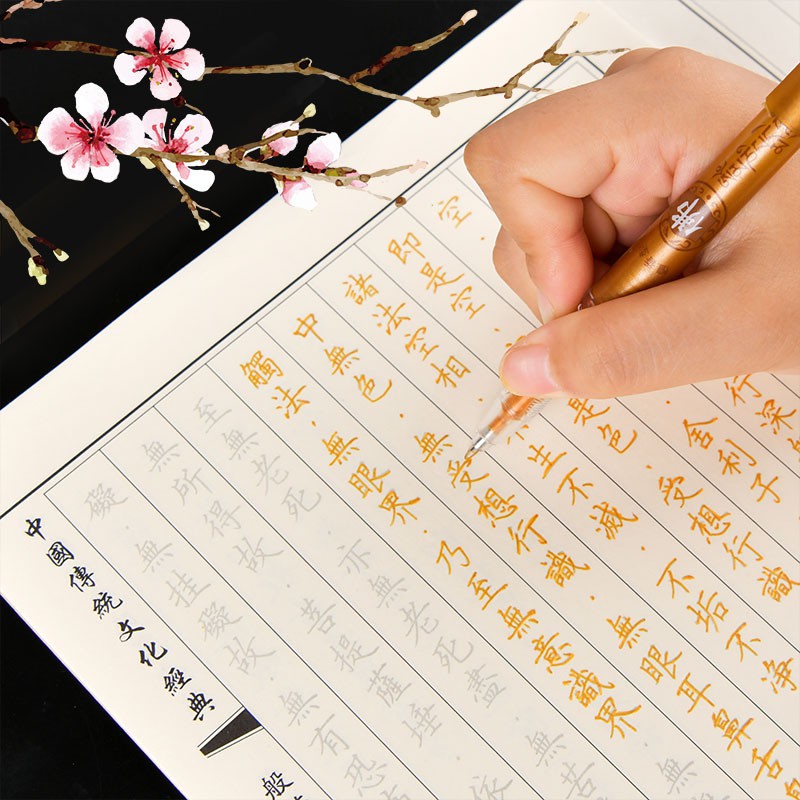 行深
空
舍利子
即是空
是色.受想行識
諸法空相.
生不滅.不垢不净
中無色.無受想行識.無眼耳鼻舌
觸法.無眼界.乃至無意識界.無
至無老死.亦無老死盡.無苦
無所得故.菩提薩埵.依
礙.無挂礙故.無有恐
中國傳統文化經典
般
佛